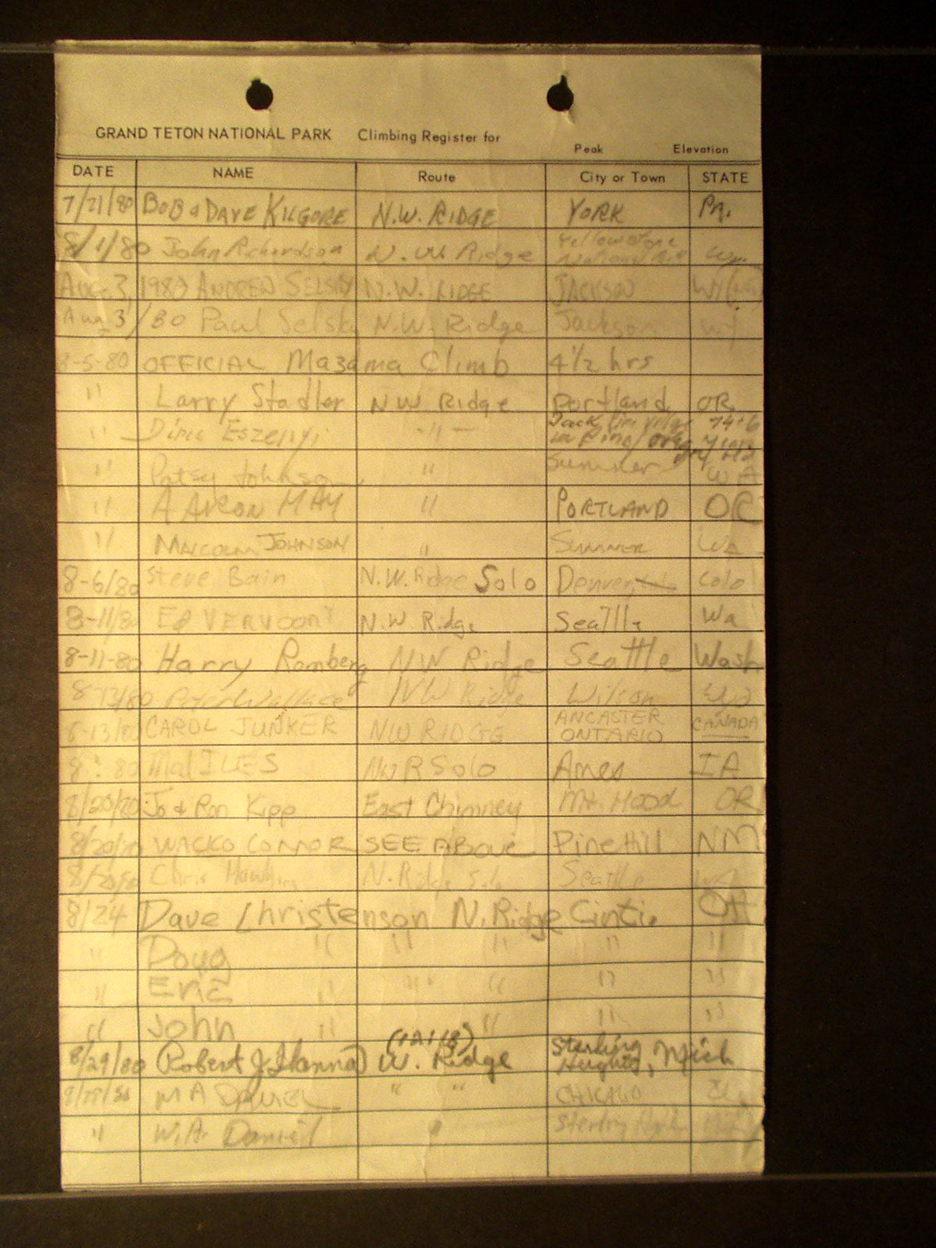 GRAND TETON NATIONAL PARK Climbing Register for
Peak Elevation
DATE NAME Route City or Town STATE
7/21/80 BOB & DAVE KILGORE N.W. RIDGE YORK PA.
8/1/80 John Richardson N.W Ridge Yellowstone
National
AUG 3, 1980 ANDREW SELSKY N.W. RIDGE JACKSON
Aug 3/80 Paul Selsky N.W. Ridge Jackson WY
8-5-80 OFFICIAL Mazama Climb 4½ hrs
" Larry Stadler NW Ridge Portland OR
" "
" Patsy Johnson " Sumner WA
" A ARON MAY " PORTLAND OR
" MALCOLM JOHNSON " SUMNER WA
8-6/80 Steve Bain N.W. Ridge Solo Denver, Colo
8-11/80 ED VERVOORT N.W. Ridge Seattle Wa
8-11-80 Harry Romberg NW Ridge Seattle Wash
8-13/80 Peter Wallace NW Ridge Wilson
8-13/80 CAROL JUNKER NW RIDGE ANCASTER
ONTARIO CANADA
80 Hal IVES NW R Solo Ames IA
8/20/80 Jo & Ron Kipp East Chimney Mt. Hood OR
8/20/80 WACKO CONNOR SEE ABOVE Pine Hill NM
Chris N. Ridge Solo Seattle
8/24 Dave Christenson N. Ridge Cinti. OH
" Doug " " " " "
" Eric " " " " "
" John " " " "
8/29/80 (Robert J. Hanna) W. Ridge Sterling
Heights, Mich
M A " " CHICAGO
" W.A. Daniel " Sterling